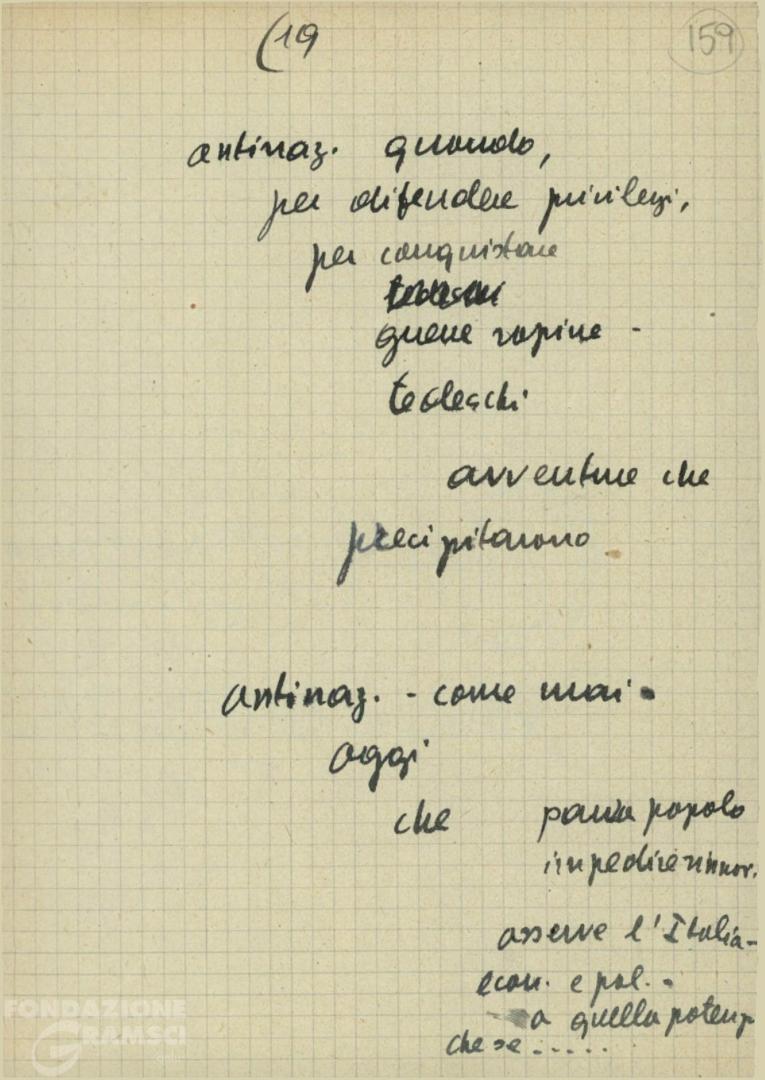 (19
159
antinaz. quando,
per difendere privilegi,
per conquistare
tedeschi
guerre rapine -
tedeschi
avventure che
precipitarono
antinaz. - come mai -
oggi
che paura popolo
impedire rinnov.
asserve l'Italia -
econ. e pol. -
a quella potenz
che se ......
FONDAZIONE
GRAMSCI